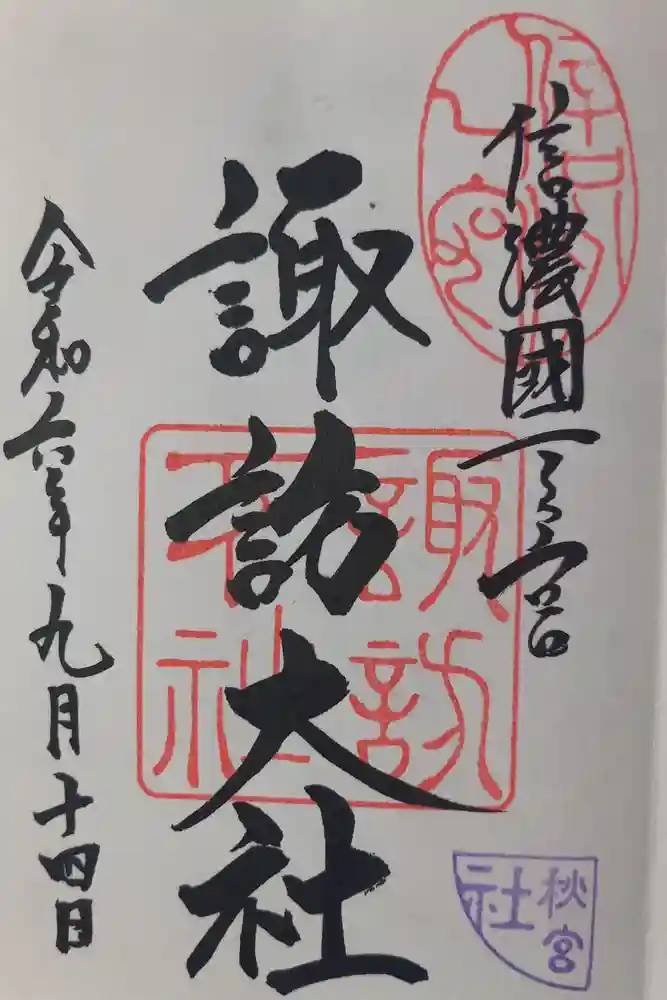 信濃國一之宮
諏訪大社
令和六年九月十四日
諏訪大社
秋宮
社